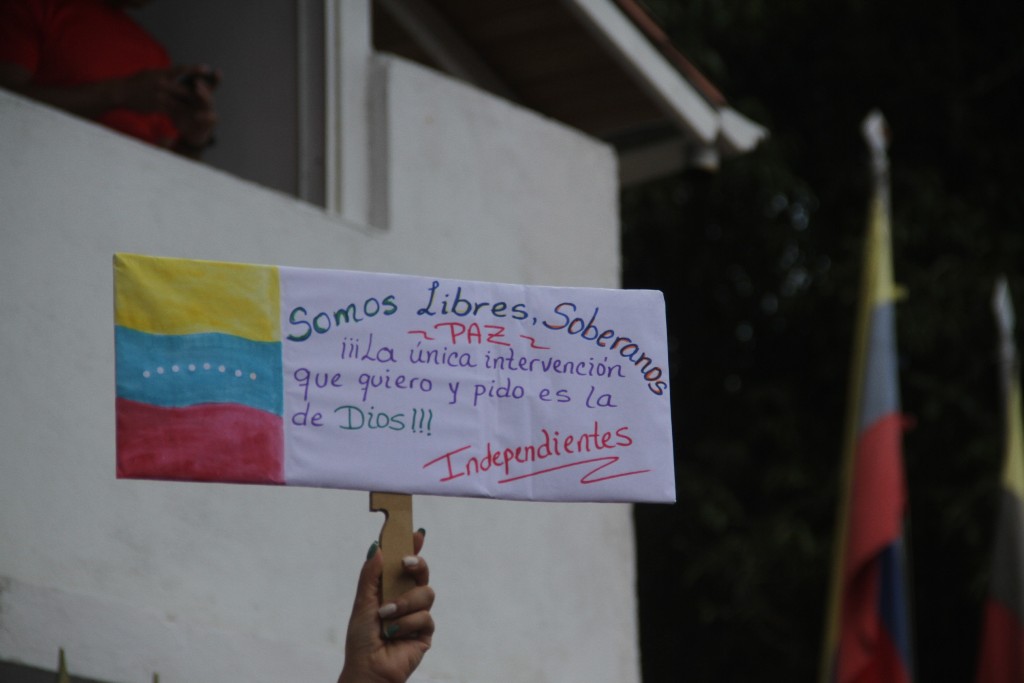 Somos Libres, Soberanos
~PAZ~
¡¡¡La única intervención
que quiero y pido es la
de Dios!!!
Independientes